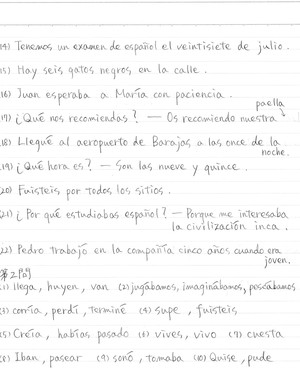 (14) Tenemos un examen de español el veintisiete de julio.
(15) Hay seis gatos negros en la calle.
(16) Juan esperaba a María con paciencia.
(17) ¿Qué nos recomiendas? — Os recomiendo nuestra paella
(18) Llegué al aeropuerto de Barajas a las once de la noche.
(19) ¿Qué hora es? — Son las nueve y quince.
(20) Fuisteis por todos los sitios.
(21) ¿Por qué estudiabas español? — Porque me interesaba
la civilización inca.
(22) Pedro trabajó en la compañía cinco años cuando era
joven.
第2問
(1) llega, huyen, van (2) jugábamos, imaginábamos, pescábamos
(3) corría, perdí, terminé (4) supe, fuisteis
(5) Creía, habías pasado (6) vives, vivo (7) cuesta
(8) Iban, pasear (9) sonó, tomaba (10) Quise, pude